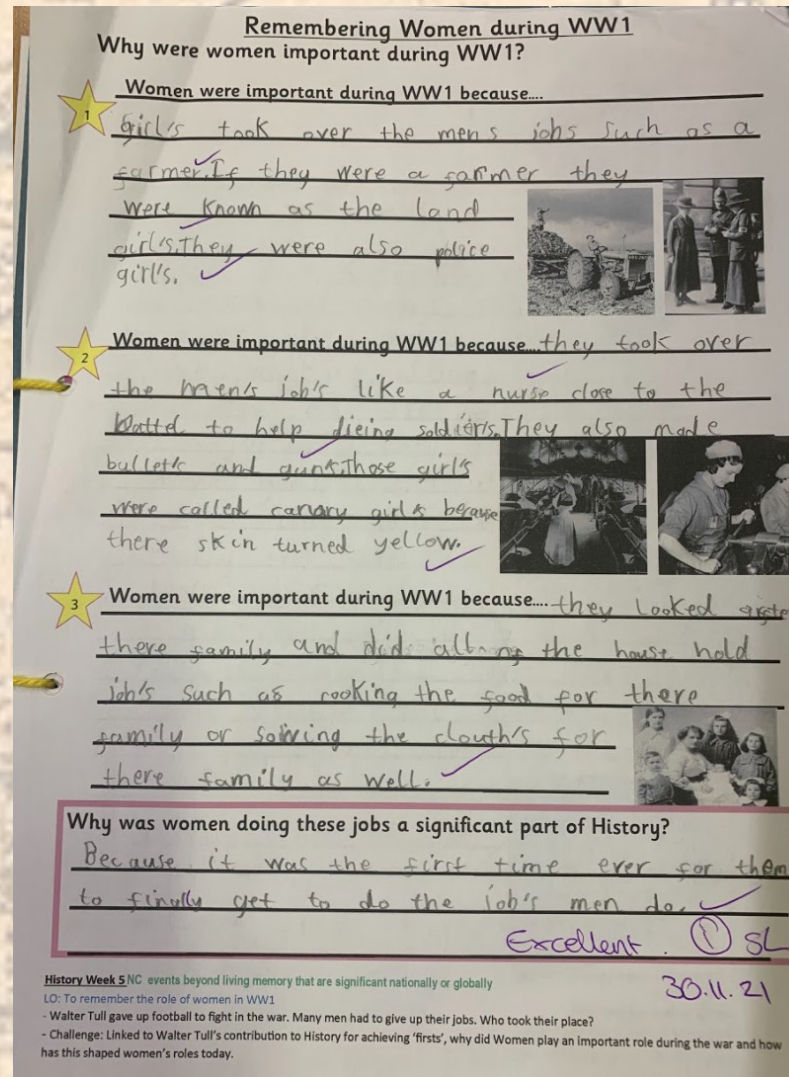 Remembering Women during WW1
Why were women important during WW1?
1
Women were important during WW1 because....
girl's took over the mens jobs such as a
farmer. If they were a farmer they
were known as the land
girl's. They were also police
girl's.
2
Women were important during WW1 because.... they took over
the men's job's like a nurse close to the
battel to help dieing soldiers. They also made
bullet's and guns. Those girl's
were called canary girls because
there skin turned yellow.
3
Women were important during WW1 because.... they looked
there family and did the house hold
job's such as cooking the food for there
family or the clouth's for
there family as well.
Why was women doing these jobs a significant part of History?
Because it was the first time ever for them
to finully get to do the job's men do.
Excellent. I SL
30.11.21
History Week 5 NC events beyond living memory that are significant nationally or globally
LO: To remember the role of women in WW1
- Walter Tull gave up football to fight in the war. Many men had to give up their jobs. Who took their place?
- Challenge: Linked to Walter Tull's contribution to History for achieving 'firsts', why did Women play an important role during the war and how
has this shaped women's roles today.